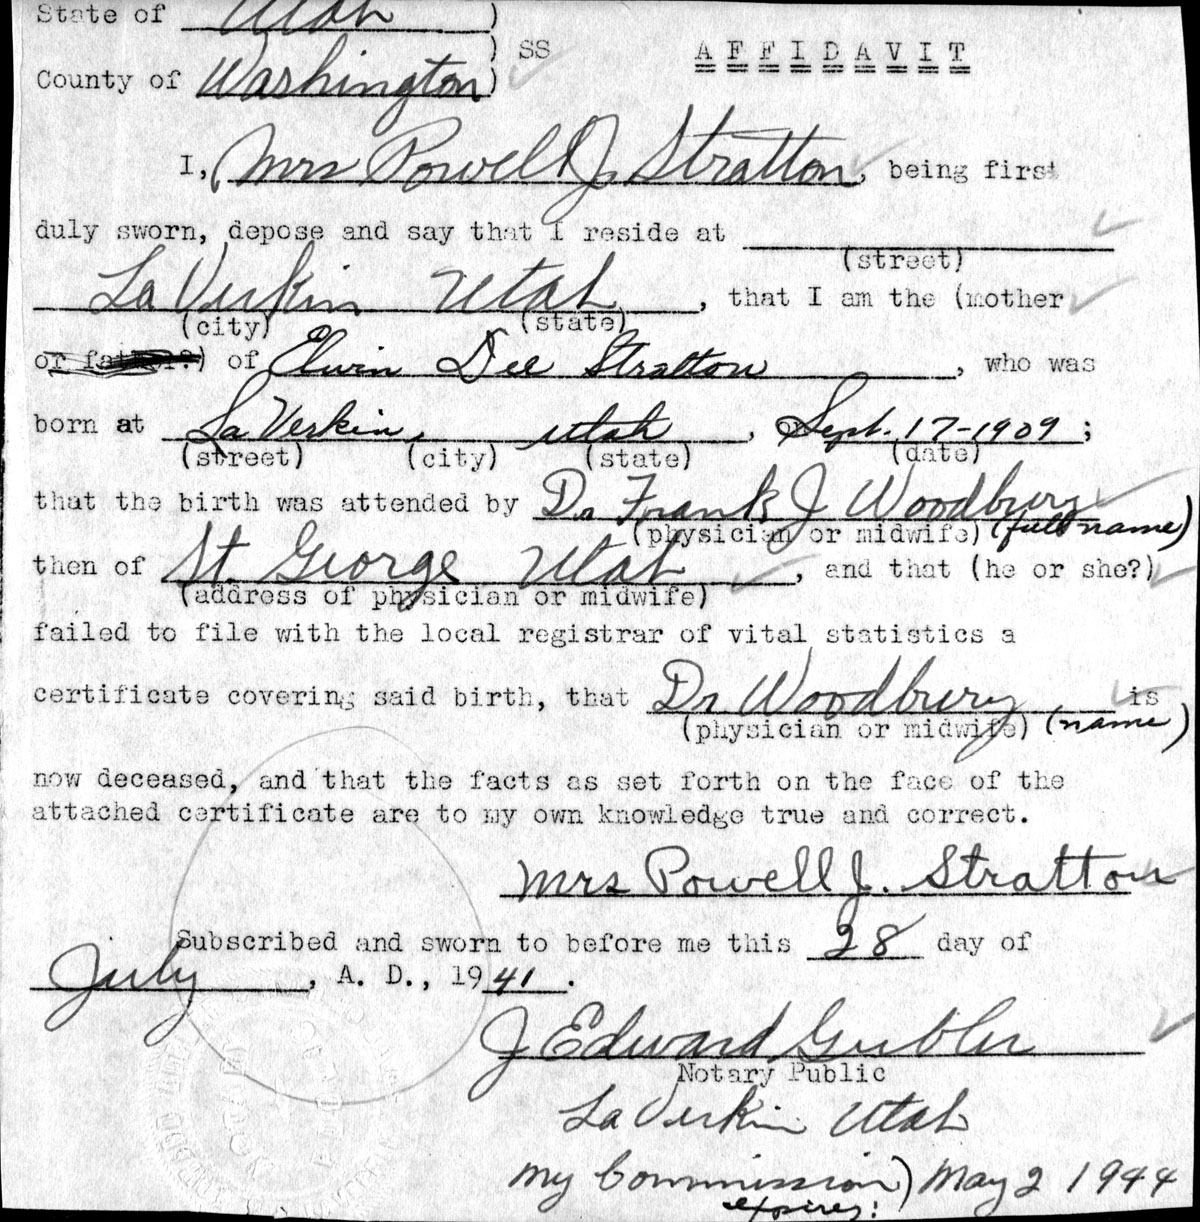 State of Utah )
) SS AFFIDAVIT
County of Washington )
I, Mrs Powell J. Stratton, being first
duly sworn, depose and say that I reside at
(street)
La Verkin Utah, that I am the (mother
(city) (state)
or father?) of Elwin Dee Stratton, who was
born at La Verkin, Utah, on Sept. 17-1909;
(street) (city) (state) (date)
that the birth was attended by Dr Frank J Woodbury
(physician or midwife) (full name)
then of St. George Utah, and that (he or she?)
(address of physician or midwife)
failed to file with the local registrar of vital statistics a
certificate covering said birth, that Dr Woodbury is
(physician or midwife) (name)
now deceased, and that the facts as set forth on the face of the
attached certificate are to my own knowledge true and correct.
Mrs Powell J. Stratton
Subscribed and sworn to before me this 28 day of
July, A. D., 1941.
J Edward Gubler
Notary Public
La Verkin Utah
My Commission) May 2 1944
expires: